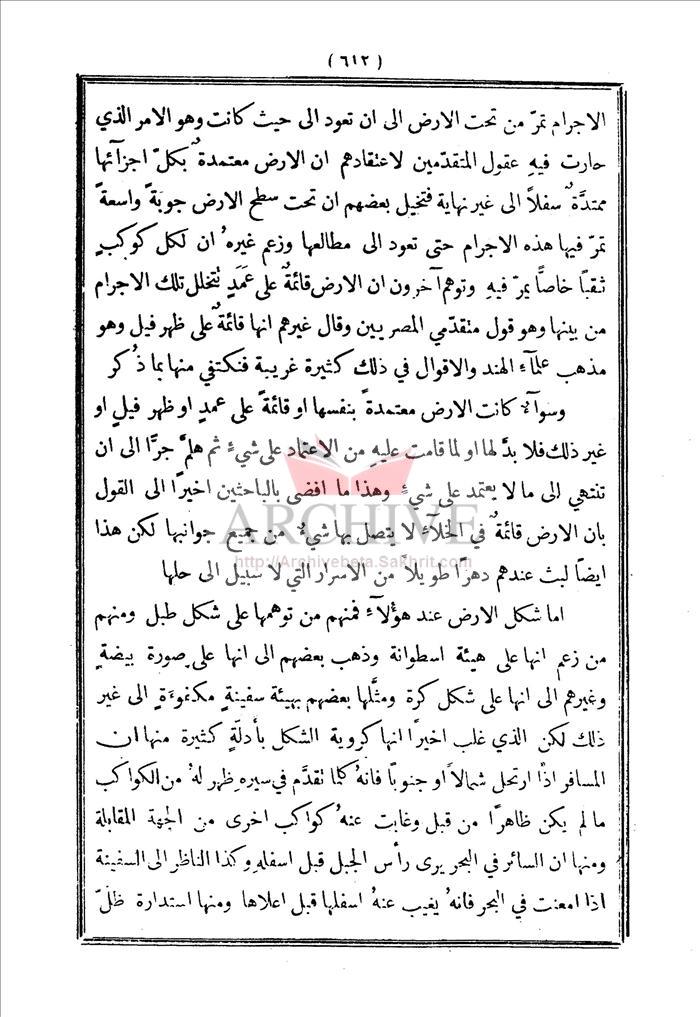 ( ٦١٢ )
الاجرام تمرّ من تحت الارض الى ان تعود الى حيث كانت وهو الامر الذي
حارت فيهِ عقول المتقدّمين لاعتقادهم ان الارض معتمدةٌ بكلّ اجزآئها
ممتدَّةٌ سفلاً الى غير نهاية فتخيل بعضهم ان تحت سطح الارض جوبةً واسعةً
تمرّ فيها هذه الاجرام حتى تعود الى مطالعها وزعم غيرهُ ان لكل كوكبٍ
ثقباً خاصاً يمرّ فيهِ وتوهم آخرون ان الارض قائمةٌ على عَمَدٍ تتخلل تلك الاجرام
من بينها وهو قول متقدّمي المصريين وقال غيرهم انها قائمةٌ على ظهر فيل وهو
مذهب علمآء الهند والاقوال في ذلك كثيرة غريبة فنكتفي منها بما ذُكر
وسوآءٌ كانت الارض معتمدةً بنفسها او قائمةً على عمدٍ او ظهر فيلٍ او
غير ذلك فلا بدَّ لها او لما قامت عليهِ من الاعتماد على شيءٍ ثم هلمَّ جرًّا الى ان
تنتهي الى ما لا يعتمد على شيءٍ وهذا ما افضى بالباحثين اخيرًا الى القول
بان الارض قائمةٌ في الخلآء لا يتصل بها شيءٌ من جميع جوانبها لكن هذا
ايضاً لبث عندهم دهرًا طويلاً من الاسرار التي لا سبيل الى حلها
ARCHIVE
http://Archivebeta.Sakhrit.com
اما شكل الارض عند هؤلآء فمنهم من توهمها على شكل طبل ومنهم
من زعم انها على هيئة اسطوانة وذهب بعضهم الى انها على صورة بيضةٍ
وغيرهم الى انها على شكل كرة ومثَّلها بعضهم بهيئة سفينةٍ مكفوءةٍ الى غير
ذلك لكن الذي غلب اخيرًا انها كروية الشكل بأدلّةٍ كثيرة منها ان
المسافر اذا ارتحل شمالاً او جنوبًا فانهُ كلما تقدَّم في سيرهِ ظهر لهُ من الكواكب
ما لم يكن ظاهرًا من قبل وغابت عنهُ كواكب اخرى من الجهة المقابلة
ومنها ان السائر في البحر يرى رأس الجبل قبل اسفلهِ وكذا الناظر الى السفينة
اذا امعنت في البحر فانهُ يغيب عنهُ اسفلها قبل اعلاها ومنها استدارة ظلّ